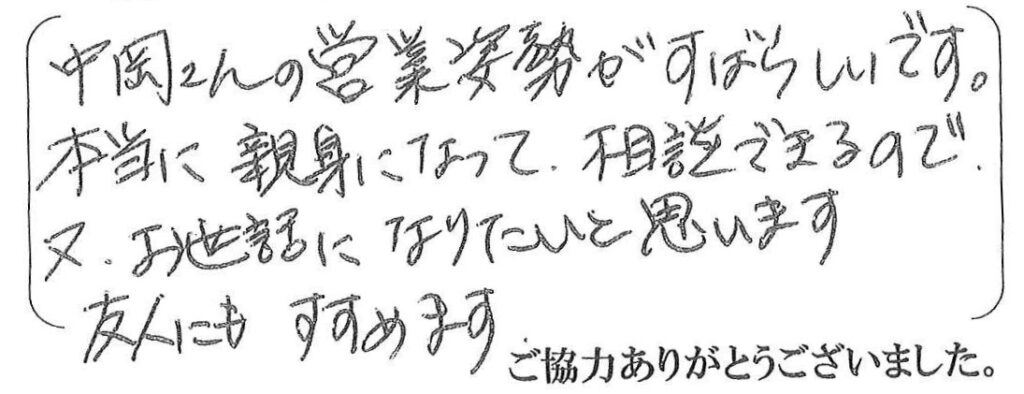 中岡さんの営業姿勢がすばらしいです。
本当に親身になって、相談できるので、
又、お世話になりたいと思います
友人にもすすめます
ご協力ありがとうございました。